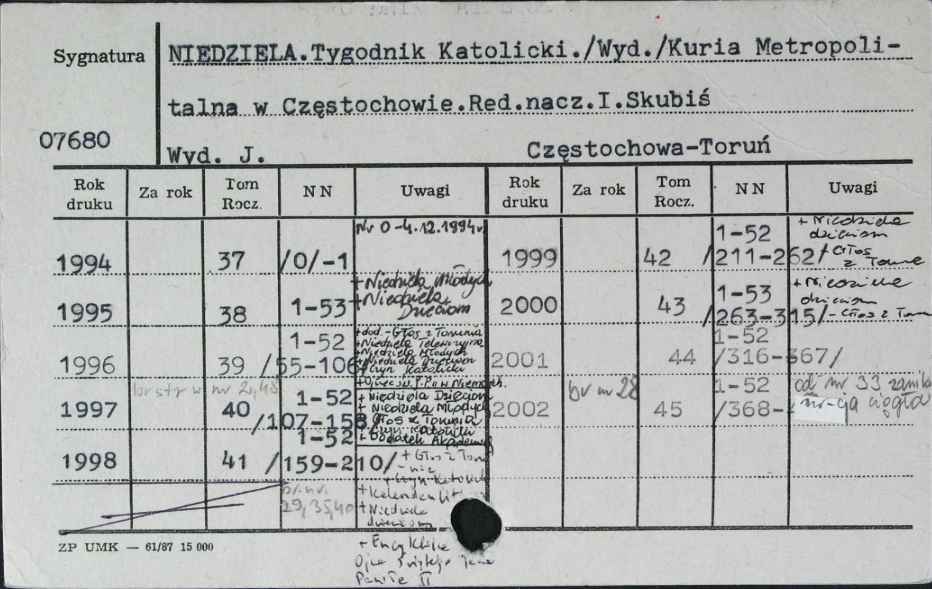 Sygnatura
NIEDZIELA.Tygodnik Katolicki./Wyd./Kuria Metropoli-
talna w Częstochowie.Red.nacz.I.Skubiś
07680
Wyd. J. Częstochowa-Toruń
Rok druku Za rok Tom Rocz. NN Uwagi Rok druku Za rok Tom Rocz. NN Uwagi
Nr 0-4.12.1994r.
1994 37 /0/-1
+ Niedziela Młodych
+ Niedziela Dzieciom
1995 38 1-53
1-52
1996 39 /55-106/
+ dod. - Głos z Torunia
+ Niedziela Młodych
+ Niedziela Dzieciom
Katolicki
br str w nr 2,48
1997 40 1-52
/107-158
+ Niedziela Dzieciom
+ Niedziela Młodych
Głos z Torunia
Katolicki
+ Dodatek Akademicki
1-52
1998 41 /159-210/
+ Głos z Toru-
nia
br. nr.
29,35,40
+ Niedziela
dzieciom
+ Encyklika
Ojca Świętego Jana
Pawła II
1999 42 1-52
/211-262/
+ Niedziela
dzieciom
+ Głos
z Torunia
2000 43 1-53
/263-315/
+ Niedziela
dzieciom
- Głos z Torunia
1-52
2001 44 /316-367/
br nr 28
1-52
2002 45 /368-
od nr 33 zanika
nr-cja ciągła
ZP UMK — 61/87 15 000